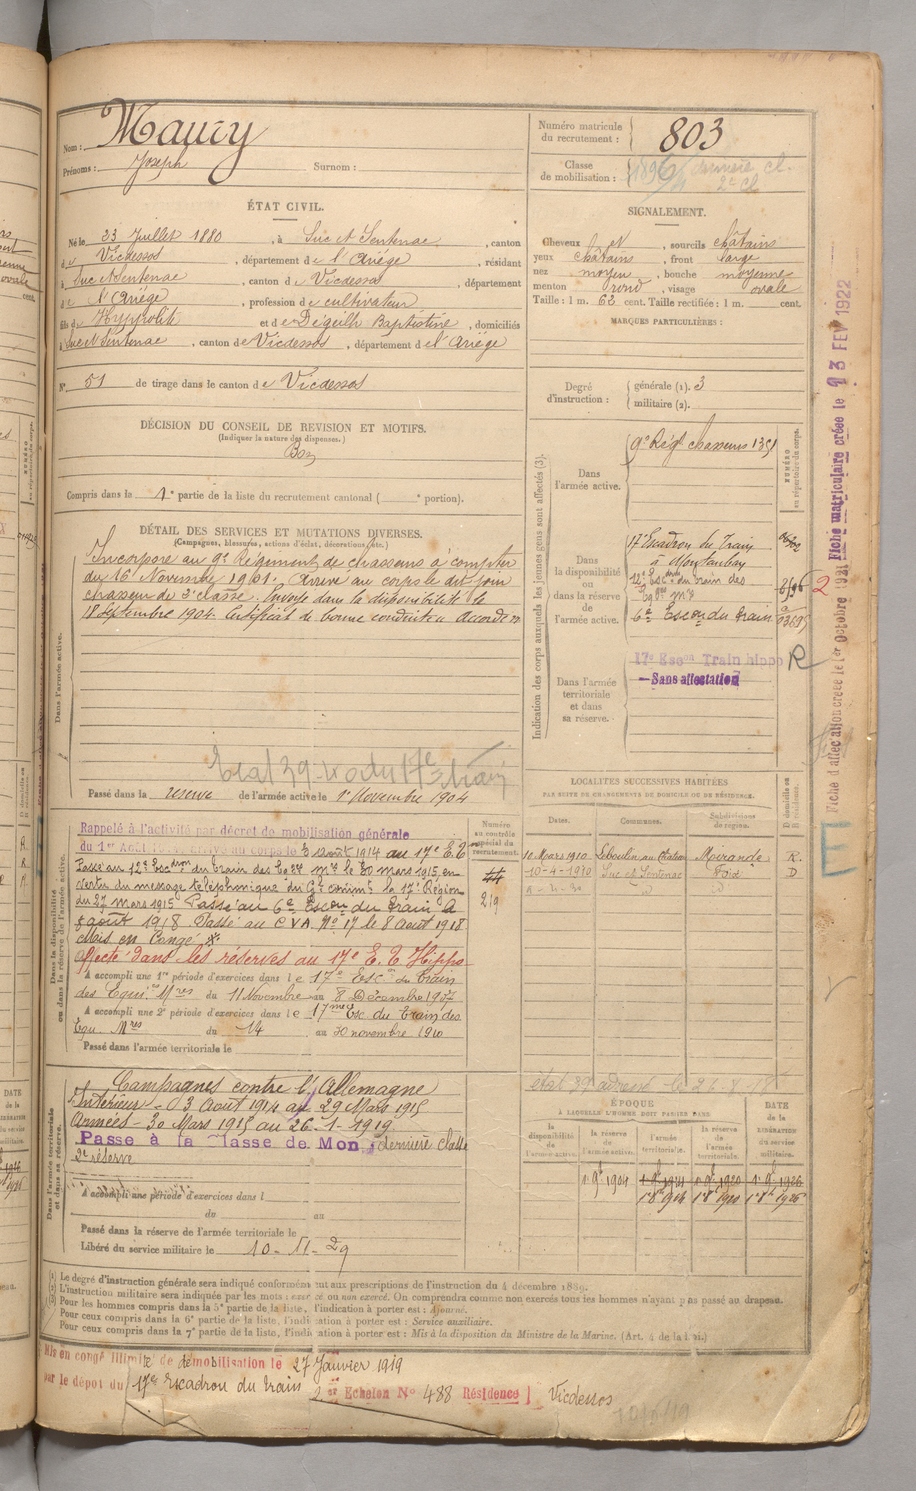 Nom : Maury
Prénoms : Joseph Surnom :
Numéro matricule du recrutement : 803
Classe de mobilisation : 1896 dernière cl.
2e cl
ÉTAT CIVIL.
Né le 23 Juillet 1880, à Suc et Sentenac, canton
de Vicdessos, département de l'Ariège, résidant
à Suc et Sentenac, canton de Vicdessos département
de l'Ariège, profession de cultivateur
fils de Hyppolit et de Degeilh Baptistine, domiciliés
à Suc et Sentenac, canton de Vicdessos, département de l'Ariège
N° 51 de tirage dans le canton de Vicdessos
SIGNALEMENT.
Cheveux et, sourcils châtains
yeux châtains, front large
nez moyen, bouche moyenne
menton rond, visage ovale
Taille : 1 m. 62 cent. Taille rectifiée : 1 m. cent.
MARQUES PARTICULIÈRES :
Degré d'instruction : générale (1). 3
militaire (2).
DÉCISION DU CONSEIL DE REVISION ET MOTIFS.
(Indiquer la nature des dispenses.)
Bon
Compris dans la 1e partie de la liste du recrutement cantonal ( e portion).
DÉTAIL DES SERVICES ET MUTATIONS DIVERSES.
(Campagnes, blessures, actions d'éclat, décorations, etc.)
Dans l'armée active.
Incorporé au 9e Régiment de chasseurs à compter
du 16 Novembre 1901. Arrivé au corps le dit jour
chasseur de 2e classe. Envoyé dans la disponibilité le
18 Septembre 1904. Certificat de bonne conduite " Accordé "
Passé dans la réserve de l'armée active le 1er Novembre 1904
Indication des corps auxquels les jeunes gens sont affectés (3).
NUMÉRO au répertoire du corps.
Dans l'armée active.
9e Régt chasseurs
Dans la disponibilité ou dans la réserve de l'armée active.
17e Escadron du Train
à Montauban
12e Escon du train des
Eq. mres
6e Escon du train
17e Escon Train hippo R
— Sans affectation
Dans l'armée territoriale et dans sa réserve.
Fiche d'affectation créée le 1er Octobre 1921
Fiche matriculaire créée le 13 FEV 1922
Dans la disponibilité ou dans la réserve de l'armée active.
Numéro au contrôle spécial du recrutement.
219
Rappelé à l'activité par décret de mobilisation générale
du 1er Août 1914 arrivé au corps le 3 août 1914 au 17e E.T
Passé au 12e Escadron du train des Eq. mres le 30 mars 1915, en
vertu du message téléphonique du Gt commt la 17e Région
du 27 mars 1915 Passé au 6e Escon du train le
août 1918. Passé au CVA No 17 le 8 août 1918
Mis en Congé *
affecté dans les réserves au 17e E. T Hippo
A accompli une 1re période d'exercices dans le 17e Escon du Train
des Equi. Mres du 11 Novembre au 8 Décembre 1907
A accompli une 2e période d'exercices dans le 17me Esc. du Train des
Equ. Mres du 14 au 30 novembre 1910
Passé dans l'armée territoriale le
LOCALITÉS SUCCESSIVES HABITÉES
PAR SUITE DE CHANGEMENTS DE DOMICILE OU DE RÉSIDENCE.
Dates. Communes. Subdivisions de région. D domicile ou R résidence.
10 Mars 1910 Leboulin au Château Mirande R.
10-4-1910 Suc et Sentenac Foix D
Dans l'armée territoriale et dans sa réserve.
Campagnes contre l'Allemagne
Intérieur - 3 Août 1914 au 29 Mars 1915
Armées - 30 Mars 1915 au 26-1-1919
Passé à la Classe de Mob dernière classe
2e réserve
A accompli une période d'exercices dans l
du au
Passé dans la réserve de l'armée territoriale le
Libéré du service militaire le 10 - 11 - 29
ÉPOQUE
À LAQUELLE L'HOMME DOIT PASSER DANS
DATE de la LIBÉRATION du service militaire.
la disponibilité de l'armée active. la réserve de l'armée active. l'armée territoriale. la réserve de l'armée territoriale.
(1) Le degré d'instruction générale sera indiqué conformément aux prescriptions de l'instruction du 4 décembre 1889.
(2) L'instruction militaire sera indiquée par les mots : exercé ou non exercé. On comprendra comme non exercés tous les hommes n'ayant pas passé au drapeau.
(3) Pour les hommes compris dans la 5e partie de la liste, l'indication à porter est : Ajourné.
Pour ceux compris dans la 6e partie de la liste, l'indication à porter est : Service auxiliaire.
Pour ceux compris dans la 7e partie de la liste, l'indication à porter est : Mis à la disposition du Ministre de la Marine. (Art. 4 de la loi.)
Mis en congé illimité de démobilisation le 27 Janvier 1919
par le dépôt du 17e Escadron du train 2e Echelon N° 488 Résidence Vicdessos